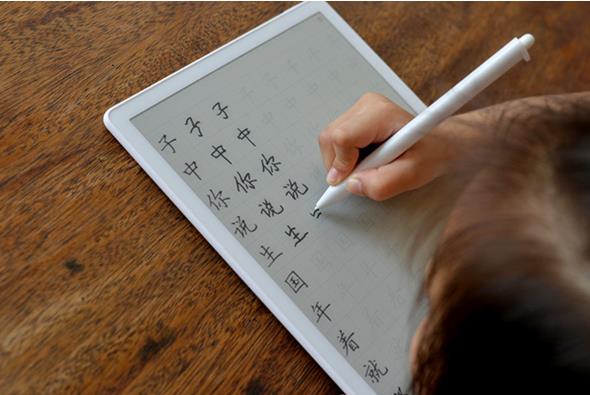 子子子
中中中
你你你
说说说
生生
国
年
着
就